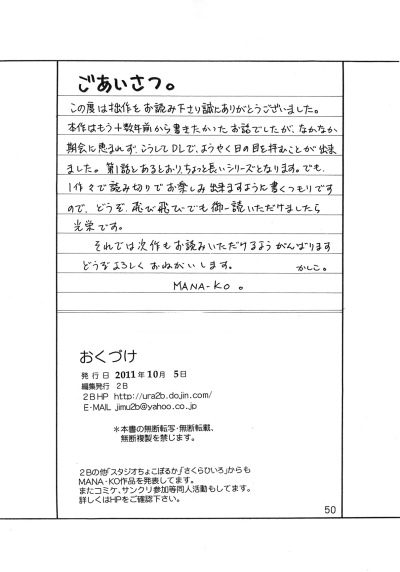 ごあいさつ。
この度は拙作をお読み下さり誠にありがとうございました。
本作はもう十数年前から書きたかったお話でしたが、なかなか
期会に恵まれず、こうしてDLで、ようやく日の目を拝むことが出来
ました。第1話とあるとおり、ちょっと長いシリーズとなります。でも、
1作々で読み切りでお楽しみ出来ますように書くつもりです
ので、どうぞ、飛び飛びでも御一読いただけましたら
光栄です。
それでは次作もお読みいただけるようがんばります
どうぞよろしくおねがいします。 かしこ。
MANA-KO。
おくづけ
発行日 2011年10月 5日
編集発行 2B
2B HP http://ura2b.dojin.com/
E-MAIL jimu2b@yahoo.co.jp
＊本書の無断転写・無断転載、
無断複製を禁じます。
2Bの他「スタジオちょこぽるか」「さくらひいろ」からも
MANA・KO作品を発表してます。
またコミケ、サンクリ参加等同人活動もしてます。
詳しくはHPをご確認下さい。
50